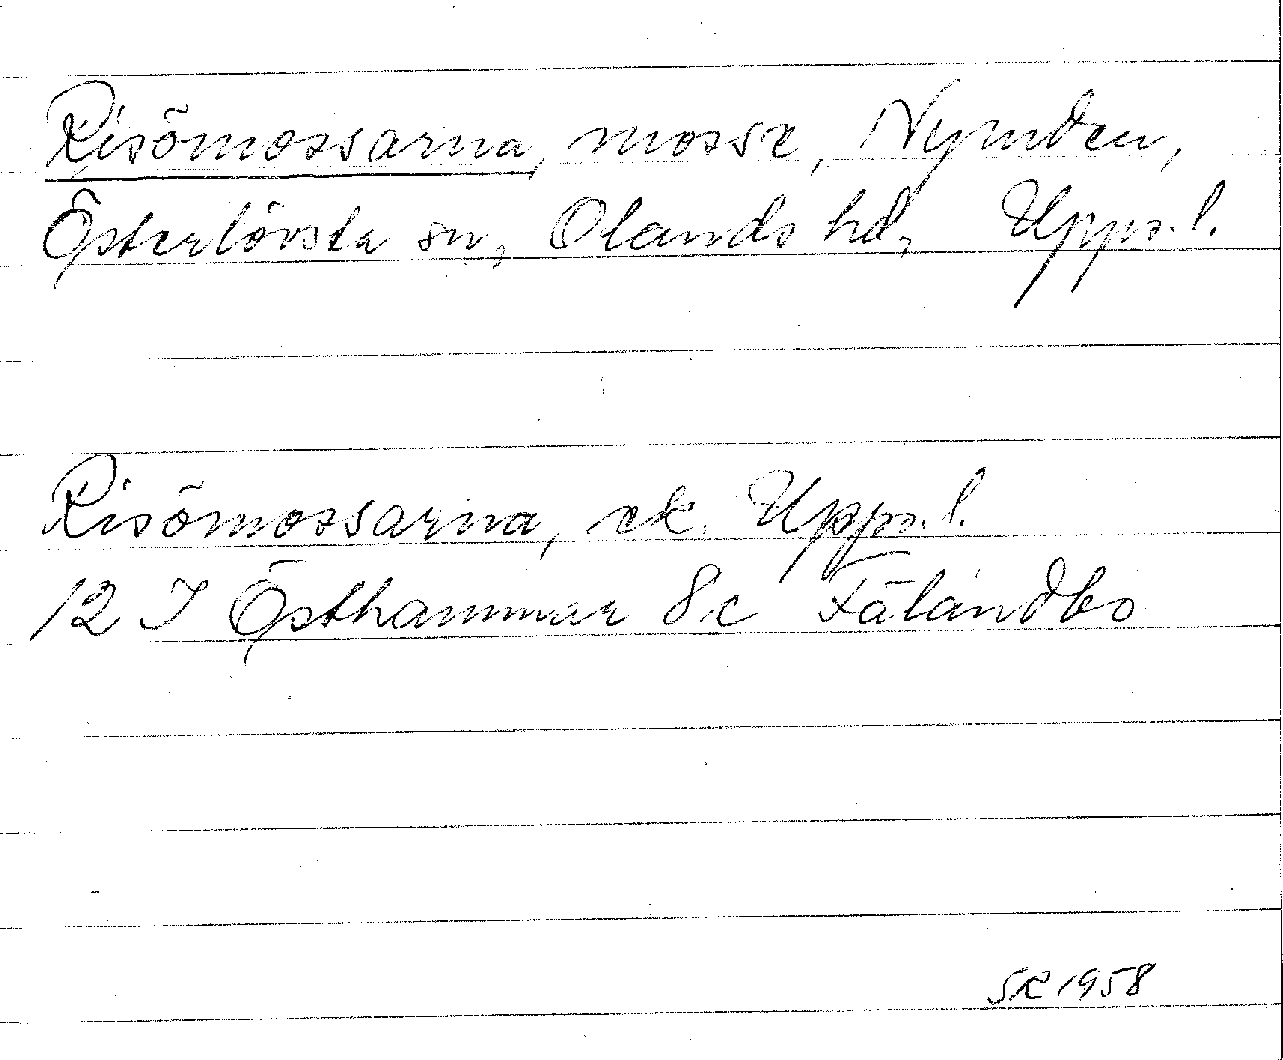 Risömossarna, mosse, Nymden,
Österlövsta sn, Olands hd, Upps. l.
Risömossarna, ek. Upps. l.
12 I Östhammar 8c Fälandbo
SR 1958